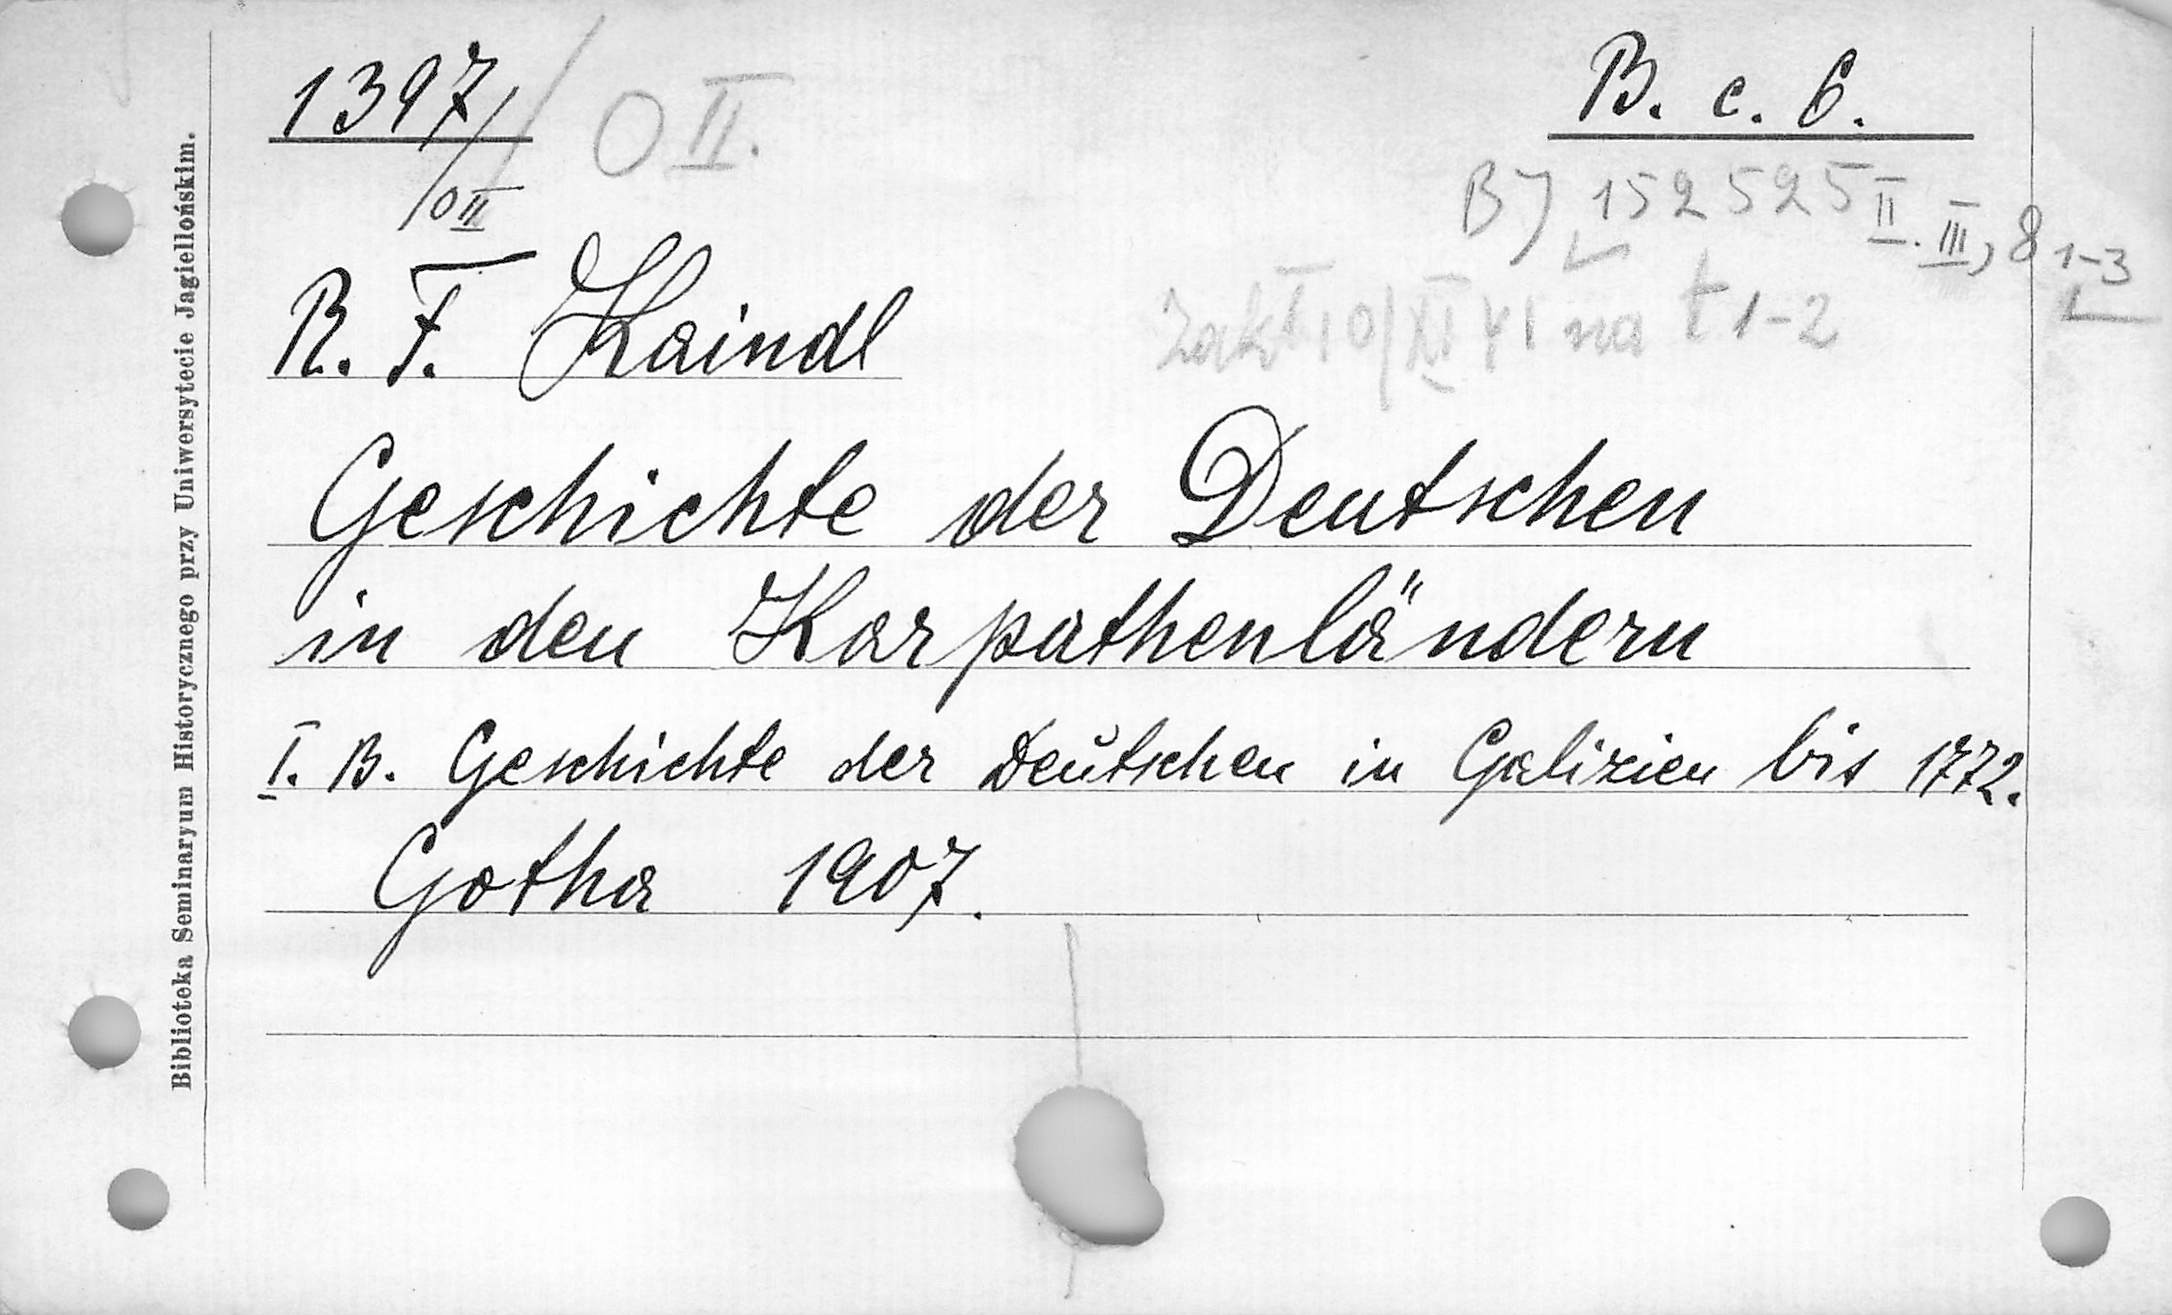 1397/OII
O II.
B. c. 6.
BJ 152525 II. III, 8 1-3
R. F. Kaindl
na t 1-2
Geschichte der Deutschen
in den Karpathenländern
I. B. Geschichte der Deutschen in Galizien bis 1772.
Gotha 1907.
Biblioteka Seminaryum Historycznego przy Uniwersytecie Jagiellońskim.